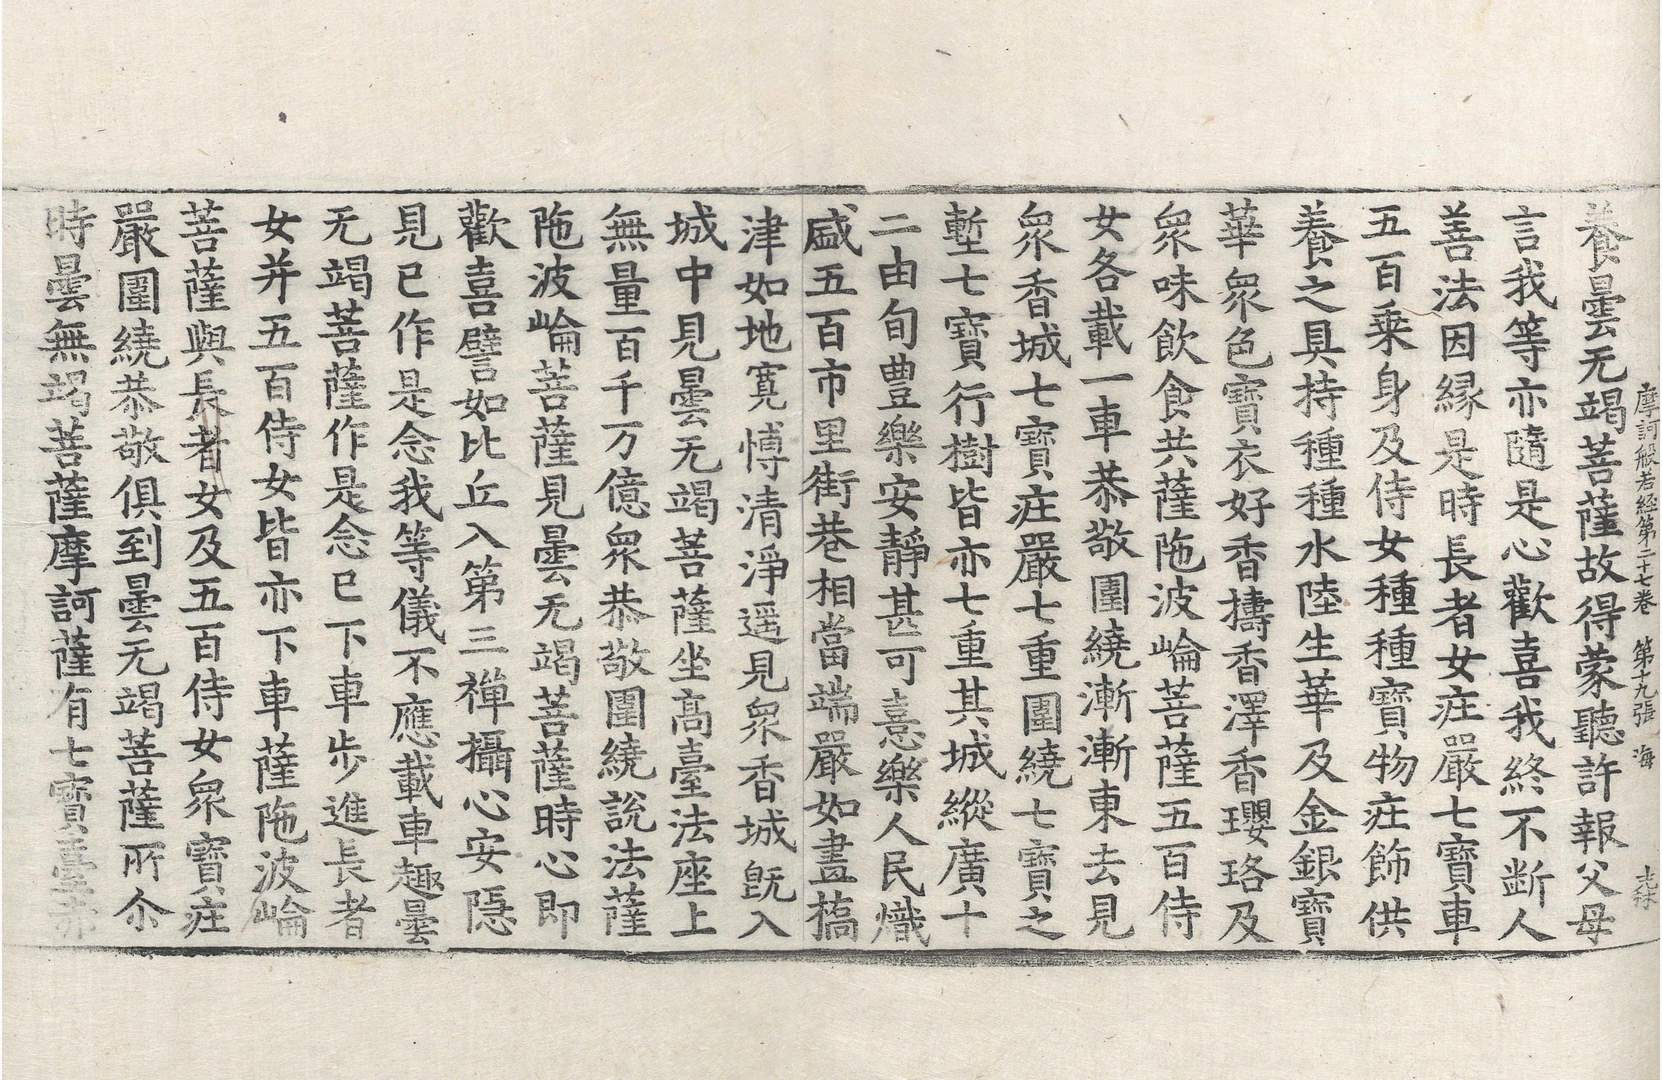 摩訶般若經第二十七卷　第十九張　海
養曇无竭菩薩故得蒙聽許報父母
言我等亦隨是心歡喜我終不斷人
善法因緣是時長者女莊嚴七寶車
五百乘身及侍女種種寶物莊飾供
養之具持種種水陸生華及金銀寶
華眾色寶衣好香擣香澤香瓔珞及
眾味飲食共薩陁波崘菩薩五百侍
女各載一車恭敬圍繞漸漸東去見
眾香城七寶莊嚴七重圍繞七寶之
塹七寶行樹皆亦七重其城縱廣十
二由旬豊樂安靜甚可憙樂人民熾
盛五百市里街巷相當端嚴如畫搞
津如地寬博清淨遥見眾香城旣入
城中見曇无竭菩薩坐髙臺法座上
無量百千万億眾恭敬圍繞說法薩
陁波崘菩薩見曇无竭菩薩時心即
歡喜譬如比丘入第三禪攝心安隱
見已作是念我等儀不應載車趣曇
无竭菩薩作是念已下車步進長者
女并五百侍女皆亦下車薩陁波崘
菩薩與長者女及五百侍女眾寶莊
嚴圍繞恭敬俱到曇无竭菩薩所尒
時曇無竭菩薩摩訶薩有七寶臺赤